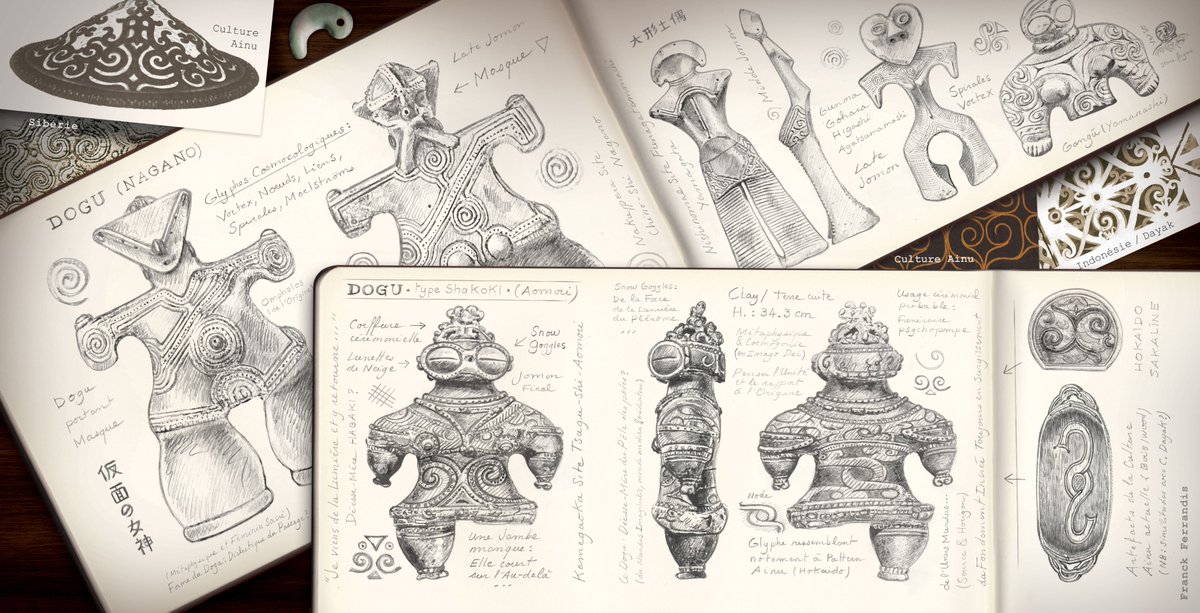 Culture
Ainu
Sibérie
DOGU (NAGANO)
Glyphes Cosmologiques:
Vortex, Noeuds, Liens,
Spirales, Maelströms
Late Jomon
Masque
Omphalos
Dogu
portant
Masque
仮面の女神
(Métaphysique et Féminin Sacré)
Forme du Dogu: Dialectique du Passage?
Nakappara Site
Chino-Shi, Nagano
大形土偶
Nishinomae Site Funagata
Yamagata
Middle Jomon
Gunma
Gohara
Higashi
Agatsumamachi
Late
Jomon
Spirales
Vortex
Gangū (Yamanashi)
Culture Ainu
Indonésie / Dayak
DOGU • type ShaKoKi • (Aomori)
"Je viens de la Lumière et y retourne..."
Coiffure
cérémonielle
Lunettes
de Neige
Snow
Goggles
Jomon
Final
Déesse-Mère HABAKI?
Une Jambe
manque:
Elle court
sur l'Au-delà
...
Kamegaoka Site Tsugaru-Shi. Aomori
Snow Goggles:
De la Face
de la Lumière
du Plérôme
...
Le Dogu: Déesse-Mère du Pôle des pôles?
Clay/Terre cuite
H.: 34.3 cm
Métaphysique
& Cosmogonie
(ou Imago Dei)
Penser l'Unité
et le rapport
à l'Origine
Usage cérémoniel
probable:
Funéraire
psychopompe
Node
Glyphe ressemblant
notamment à Pattern
Ainu (Hokaido)
de l'Unus Mundus...
du Fondement Incréé Toujours en Surgissement
HOKAIDO
SAKALINE
Artefacts de la Culture
Ainu actuelle (Bois/wood)
(NB: Similitudes avec C. Dayak?)
Franck Ferrandis